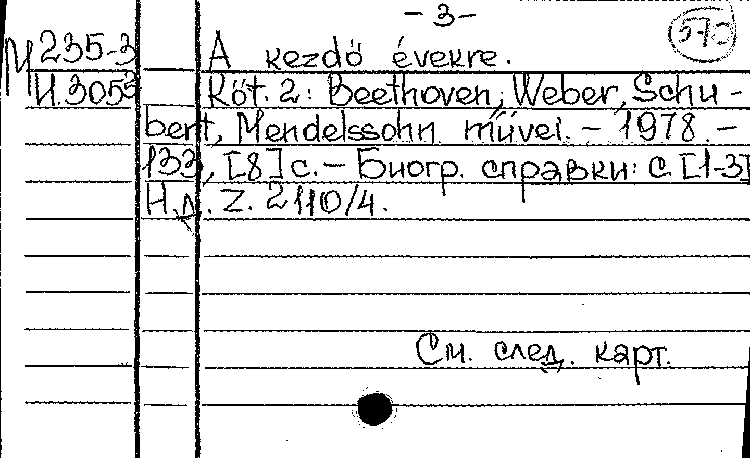 - 3 -
М 235-3
И.3053
А kezdö évekre.
Köt. 2: Beethoven, Weber, Schu-
bert, Mendelssohn müvei. - 1978. -
133, [8] с. - Биогр. справки: с. [1-3]
Н.д. Z. 2110/4.
См. след. карт.